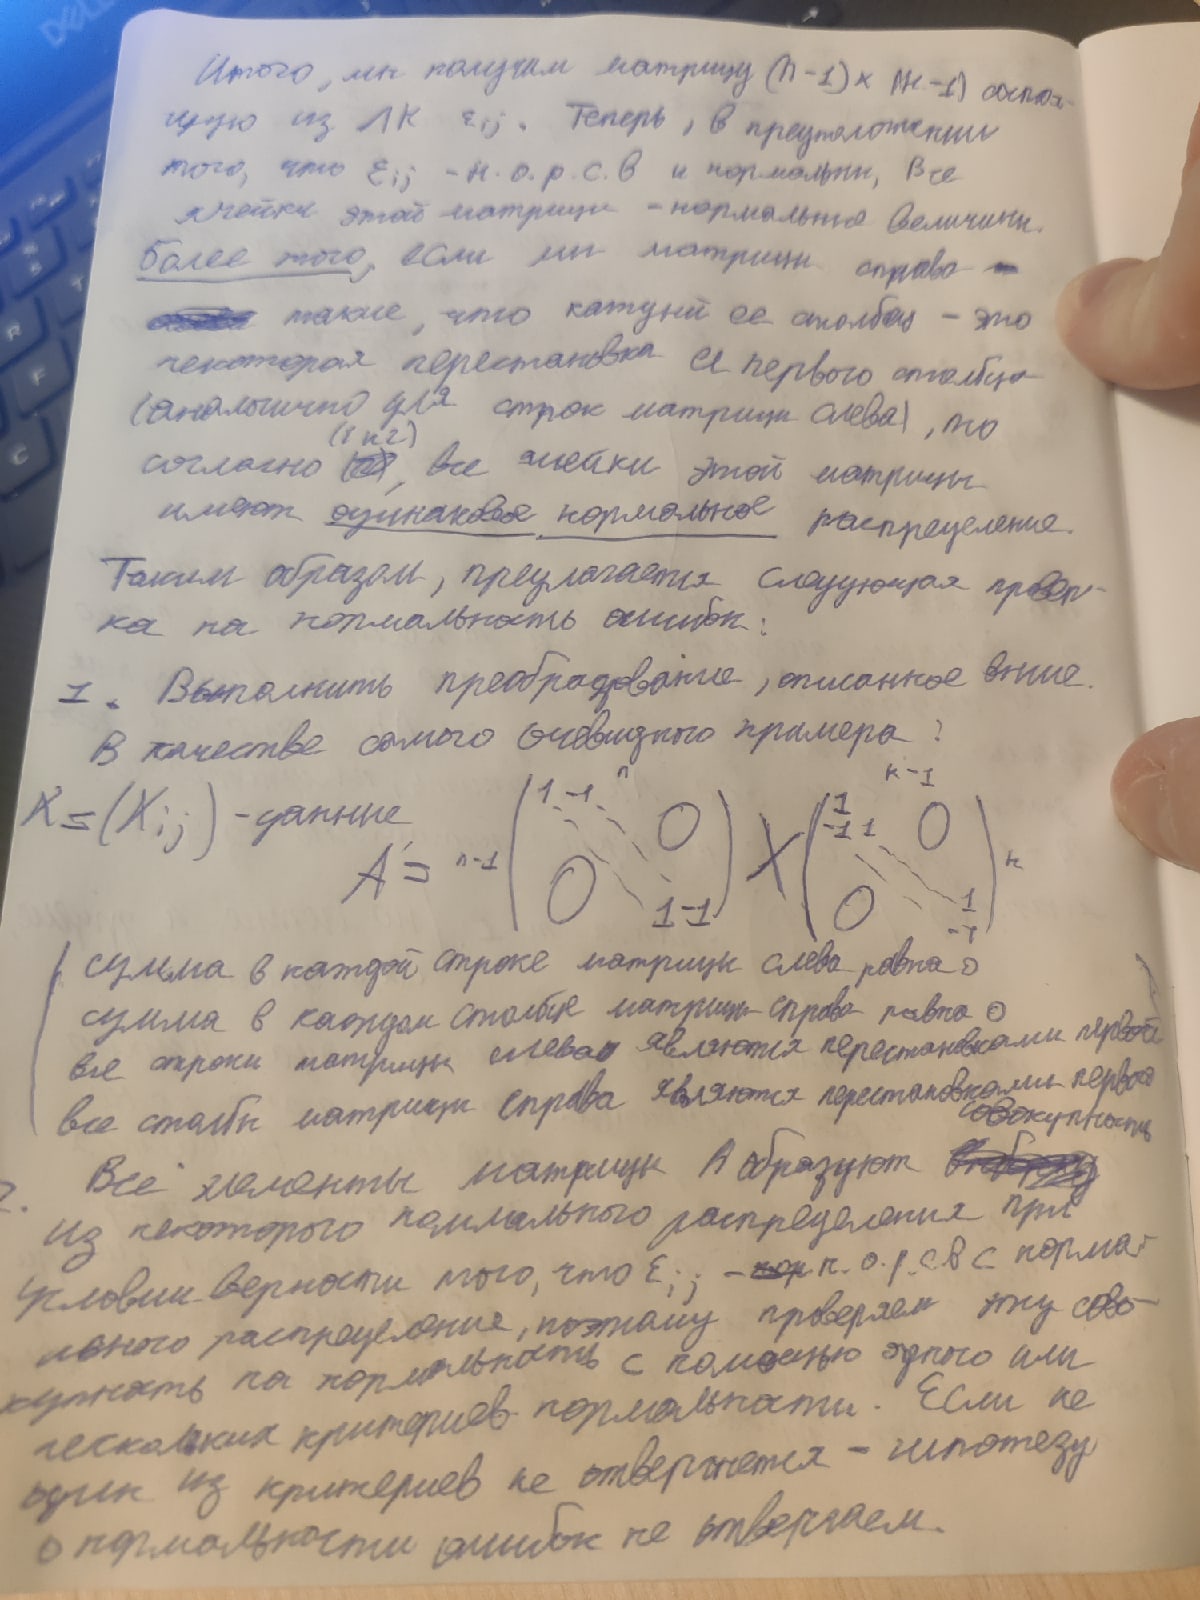 DELL
Итого, мы получим матрицу (n-1) × (к-1) состоя-
щую из ЛК εij. Теперь, в предположении
того, что εij - н.о.р.с.в и нормальны, все
ячейки этой матрицы - нормальные величины.
Более того, если мы матрицы справа -
такие, что каждый её столбец - это
некоторая перестановка её первого столбца
(аналогично для строк матрицы слева), то
согласно (1 и 2), все ячейки этой матрицы
имеют одинаковое нормальное распределение.
Таким образом, предлагается следующая провер-
ка на нормальность ошибок:
1. Выполнить преобразование, описанное выше.
В качестве самого очевидного примера:
X = (Xij) - данные
A = n-1 (1 -1 0 0 1 -1) n X (1 -1 1 0 0 1 -1) к-1 к
сумма в каждой строке матрицы слева равна 0
сумма в каждом столбце матрицы справа равна 0
все строки матрицы слева являются перестановками первой
все столбцы матрицы справа являются перестановками первого
2. Все элементы матрицы A образуют совокупность
из некоторого нормального распределения при
условии верности того, что εij - н.о.р.с.в с норма-
льного распределение, поэтому проверяем эту сово-
купность на нормальность с помощью одного или
нескольких критериев нормальности. Если не
один из критериев не отвергнется - гипотезу
о нормальности ошибок не отвергаем.